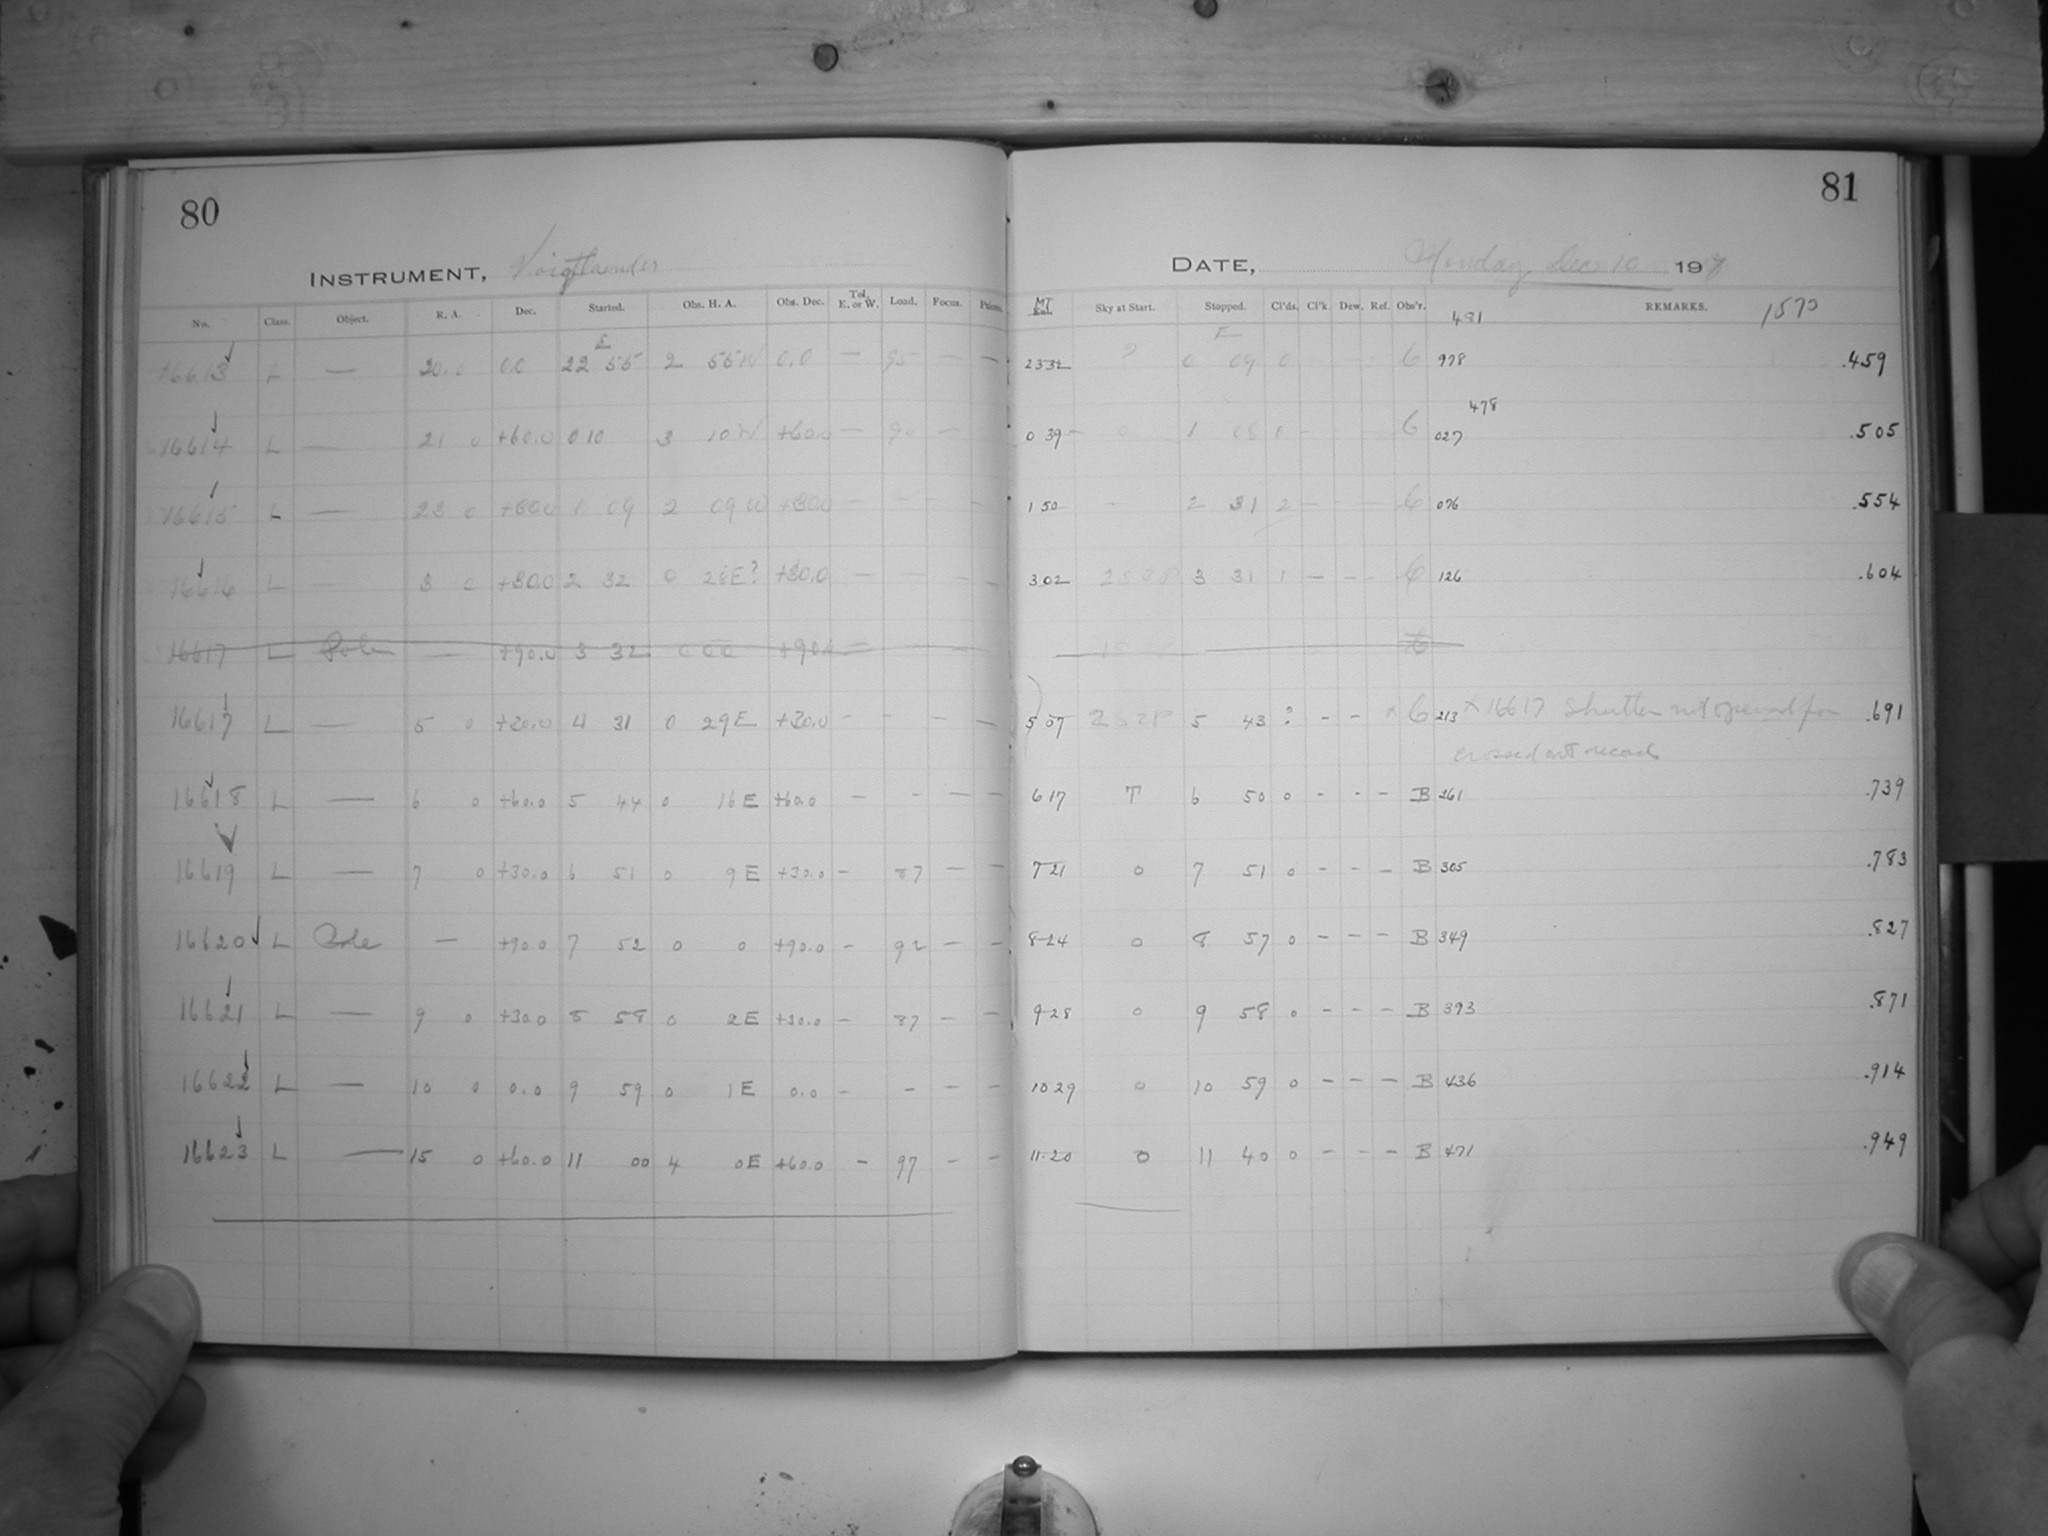 80
INSTRUMENT, Voigtlaender
No. Class. Object. R. A. Dec. Started. Obs. H. A. Obs. Dec. Tel. E. or W. Load. Focus.
E
16613 L — 20.0 0.0 22 55 2 55W 0.0 — 95 — —
16614 L — 21 0 +60.0 0 10 3 10W +60.0 — 90 — —
16615 L — 23 0 1 09 2 09W +30.0 — — — —
16616 L — 3 0 +30.0 2 32 0 28E? +30.0 — — — —
16617 L Pole — +90.0 3 32 +90.0
16617 L — 5 0 +30.0 4 31 0 29E +30.0 - - - -
16618 L — 6 0 +60.0 5 44 0 16E +60.0 — - — —
16619 L — 7 0 +30.0 6 51 0 9E +30.0 - 87 — —
16620 L Pole — +90.0 7 52 0 0 +90.0 - 92 — —
16621 L — 9 0 +30.0 8 58 0 2E +30.0 - 87 — —
16622 L — 10 0 0.0 9 59 0 1E 0.0 - - - -
16623 L — 15 0 +60.0 11 00 4 0E +60.0 - 97 - -
81
DATE, Monday Dec 10 1917
MT Sky at Start. Stopped. Cl'ds. Cl'k. Dew. Ref. Obs'r. 481 REMARKS. 1570
E
23 32 ? 0 09 0 6 978 .459
478
0 39 0 1 08 0 6 027 .505
1 50 - 2 31 2 6 076 .554
3 02 3 31 1 — - 6 126 .604
5 07 5 43 ? - - x 6 213 x 16617 Shutter not opened for .691
crossed out record
6 17 T 6 50 0 - - - B 261 .739
7 21 0 7 51 0 - - - B 305 .783
8 24 0 8 57 0 - - - B 349 .827
9 28 0 9 58 0 - - - B 393 .871
10 29 0 10 59 0 - - - B 436 .914
11.20 0 11 40 0 - - - B 471 .949